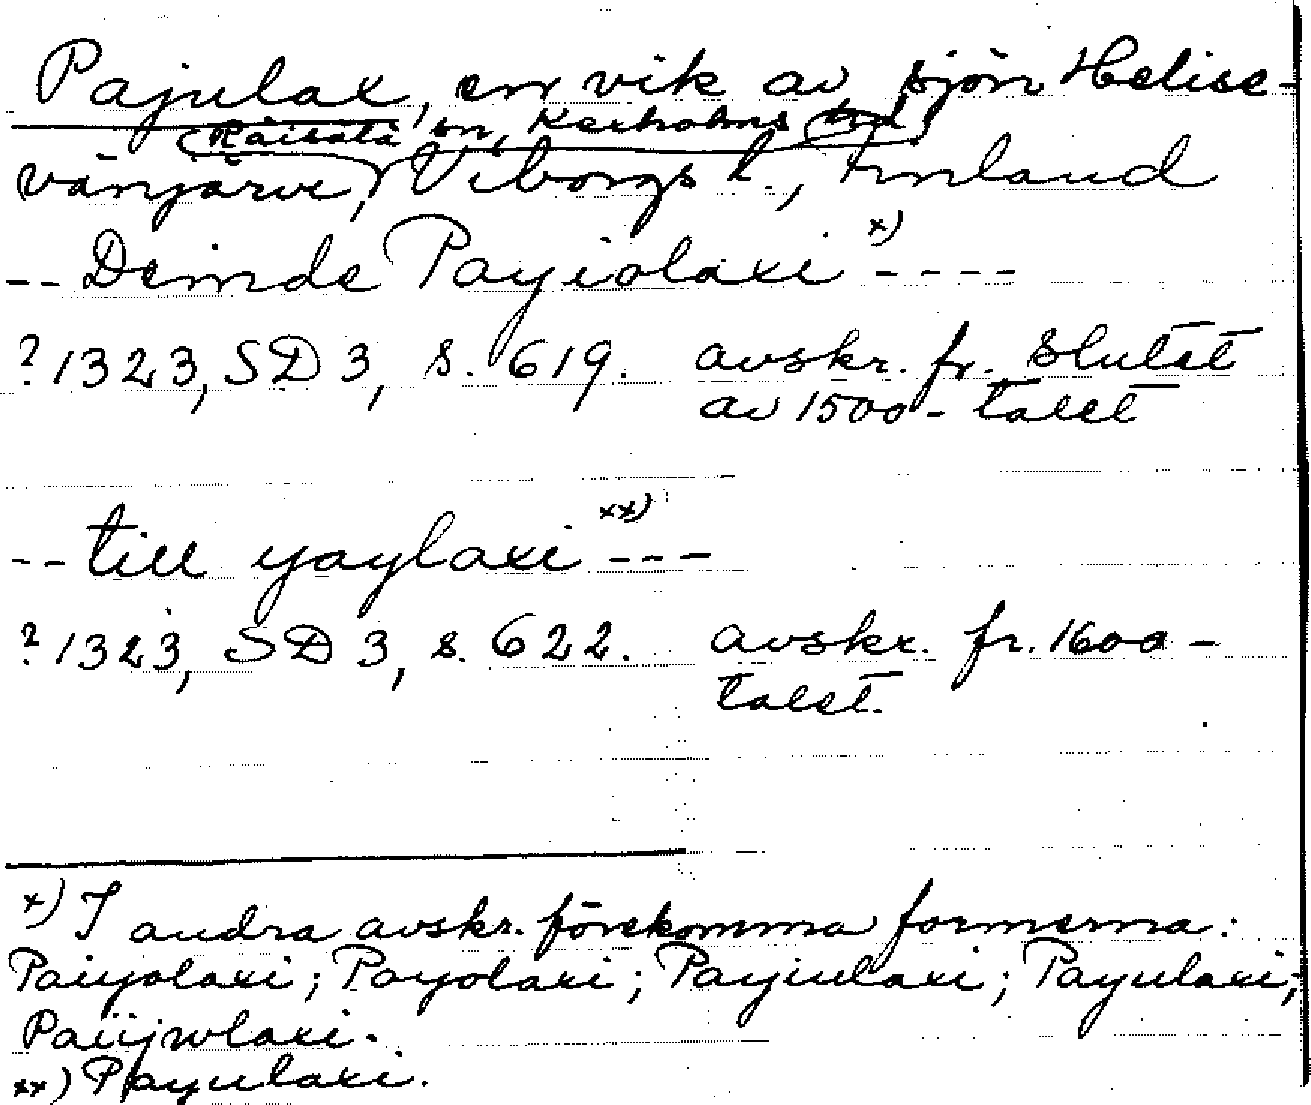 Pajulax, en vik av sjön Helise-
Räisälä sn, Kexholms
vänjärvi, Viborgs l., Finland
-- Deinde Payiolaxi x) ----
? 1323, SD 3, s. 619. avskr. fr. slutet
av 1500-talet
-- till yaylaxi xx) ---
? 1323, SD 3, s. 622. avskr. fr. 1600-
talet.
x) I andra avskr. förekomma formerna:
Paiyolaxi; Payolaxi; Payiulaxi; Payulaxi;
Paiijwlaxi.
xx) Payulaxi.